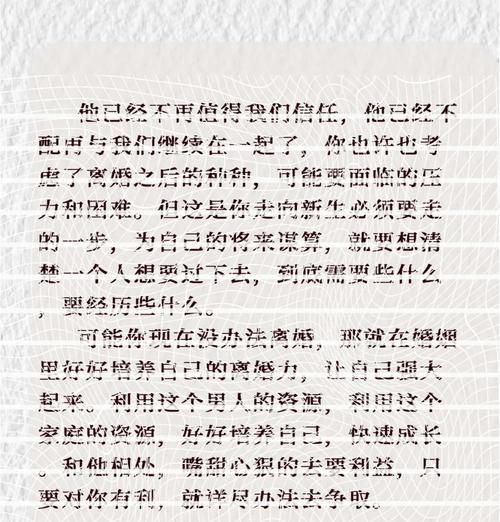 他已经不再值得我们信任，他已经不
配再与我们继续在一起了，你也许也考
虑了离婚之后的种种，可能要面临的压
力和困难。但这是你走向新生必须要走
的一步，为自己的将来谋算，就要想清
楚一个人想要过下去，到底需要些什么
，要经历些什么。
可能你现在没办法离婚，那就在婚姻
里好好培养自己的离婚力，让自己强大
起来。利用这个男人的资源，利用这个
家庭的资源，好好培养自己，快速成长
。和他相处，嘴甜心狠的去要利益，只
要对你有利，就详尽办法去争取。